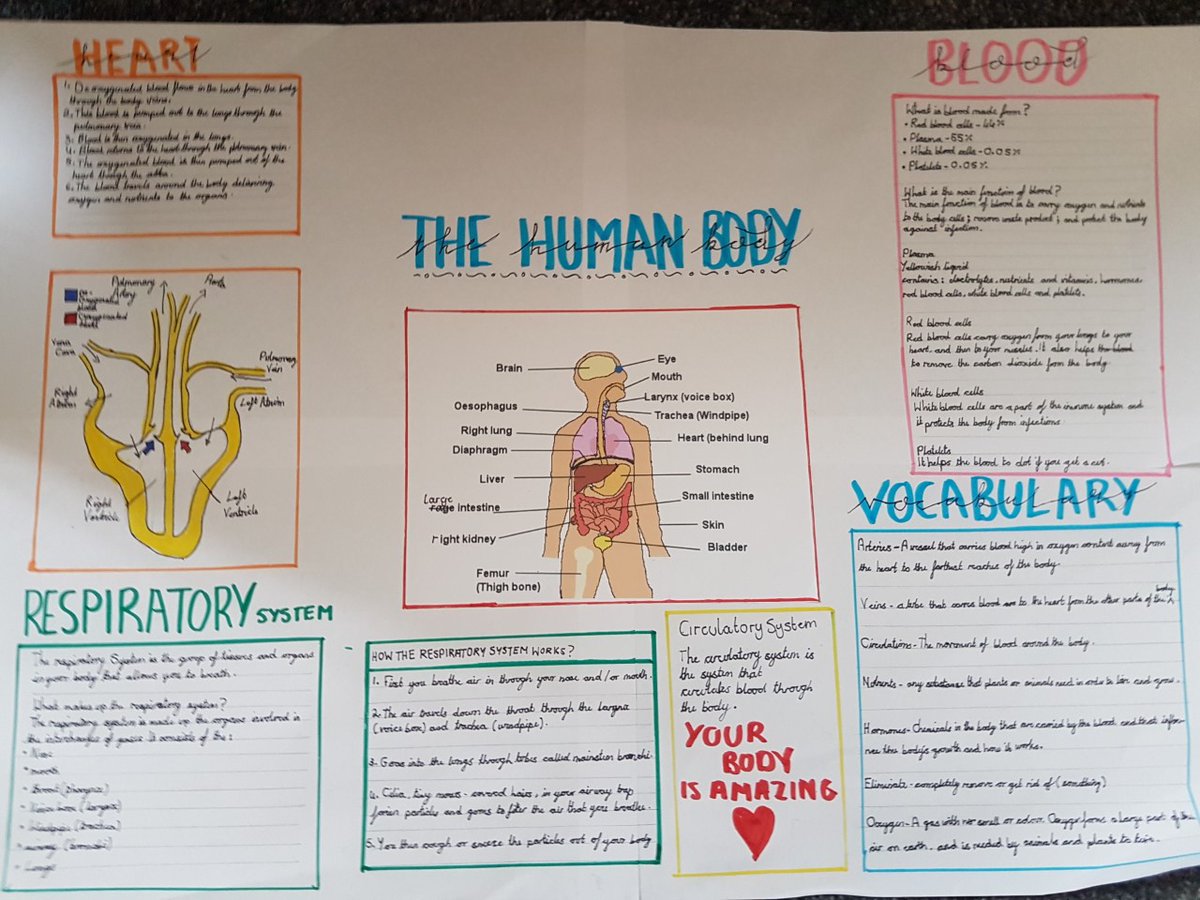 HEART
heart
1. De oxygenated blood flows in the heart from the body
through the body veins.
2. This blood is pumped out to the lungs through the
pulmonary vein.
3. Blood is then oxygenated in the lungs.
4. Blood returns to the heart through the pulmonary vein.
5. The oxygenated blood is then pumped out of the
heart through the
6. The blood travels around the body delivering
oxygen and nutrients to the organs.
Pulmonary
Artery
Aorta
De-
oxygenated
blood
Oxygenated
blood
Vena
Cava
Pulmonary
Vein
Right
Atrium
Left Atrium
Right
Ventricle
Left
Ventricle
THE HUMAN BODY
the human body
Brain
Eye
Mouth
Larynx (voice box)
Oesophagus
Trachea (Windpipe)
Right lung
Heart (behind lung
Diaphragm
Liver
Stomach
Large
intestine
Small intestine
Skin
right kidney
Bladder
Femur
(Thigh bone)
BLOOD
blood
What is blood made from?
• Red blood cells - 44%
• Plasma - 55%
• White blood cells - 0.05%
• Platelets - 0.05%
What is the main function of blood?
The main function of blood is to carry oxygen and nutrients
to the body cells; remove waste product; and protect the body
against infection.
Plasma
Yellowish liquid
contains: electrolytes, nutrients and vitamins, hormones
red blood cells, white blood cells and platelets.
Red blood cells
Red blood cells carry oxygen form your lungs to your
heart, and then to your muscles. It also helps the blood
to remove the carbon dioxide from the body
White blood cells
White blood cells are a part of the immune system and
it protects the body from infections.
Platelets
It helps the blood to clot if you get a cut.
VOCABULARY
vocabulary
Arteries - A vessel that carries blood high in oxygen content away from
the heart to the farthest reaches of the body.
Veins - a tube that carries blood to the heart from the other parts of the body
Circulations - The movement of blood around the body.
Nutrients - any substance that plants or animals need in order to live and grow.
Hormones - Chemicals in the body that are carried by the blood and that influ-
ence the body's growth and how it works.
Eliminate - completely remove or get rid of (something)
Oxygen - A gas with no smell or colour. Oxygen forms a large part of the
air on earth, and is needed by animals and plants to live.
RESPIRATORY SYSTEM
The respiratory System is the group of tissues and organs
in your body that allows you to breath.
What makes up the respiratory system?
The respiratory system is made up the organs involved in
the interchanges of gases. It consists of the:
• Nose
• mouth
• throat (pharynx)
• Voice box (larynx)
• Windpipe (trachea)
• airways (bronchi)
• Lungs
HOW THE RESPIRATORY SYSTEM WORKS?
1. First you breathe air in through your nose and/or mouth.
2. The air travels down the throat through the larynx
(voice box) and trachea (windpipe).
3. Goes into the lungs through tubes called mainstem bronchi.
4. Cilia, tiny mucus-covered hairs, in your airway trap
forien particles and germs to filter the air that you breathe.
5. You then cough or sneeze the particles out of your body
Circulatory System
The circulatory system is
the system that
circulates blood through
the body.
YOUR
BODY
IS AMAZING